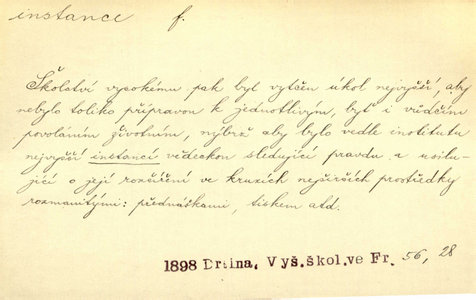 instance f.
Školství vysokému pak byl vytčen úkol nejvyšší, aby
nebylo toliko přípravou k jednotlivým, byť i vůdčím
povoláním životním, nýbrž aby bylo vedle institutu
nejvyšší instancí vědeckou sledující pravdu a usilu-
jící o její rozšíření ve kruzích nejširších prostředky
rozmanitými: přednáškami, tiskem atd.
1898 Drtina, Vyš.škol.ve Fr. 56, 28